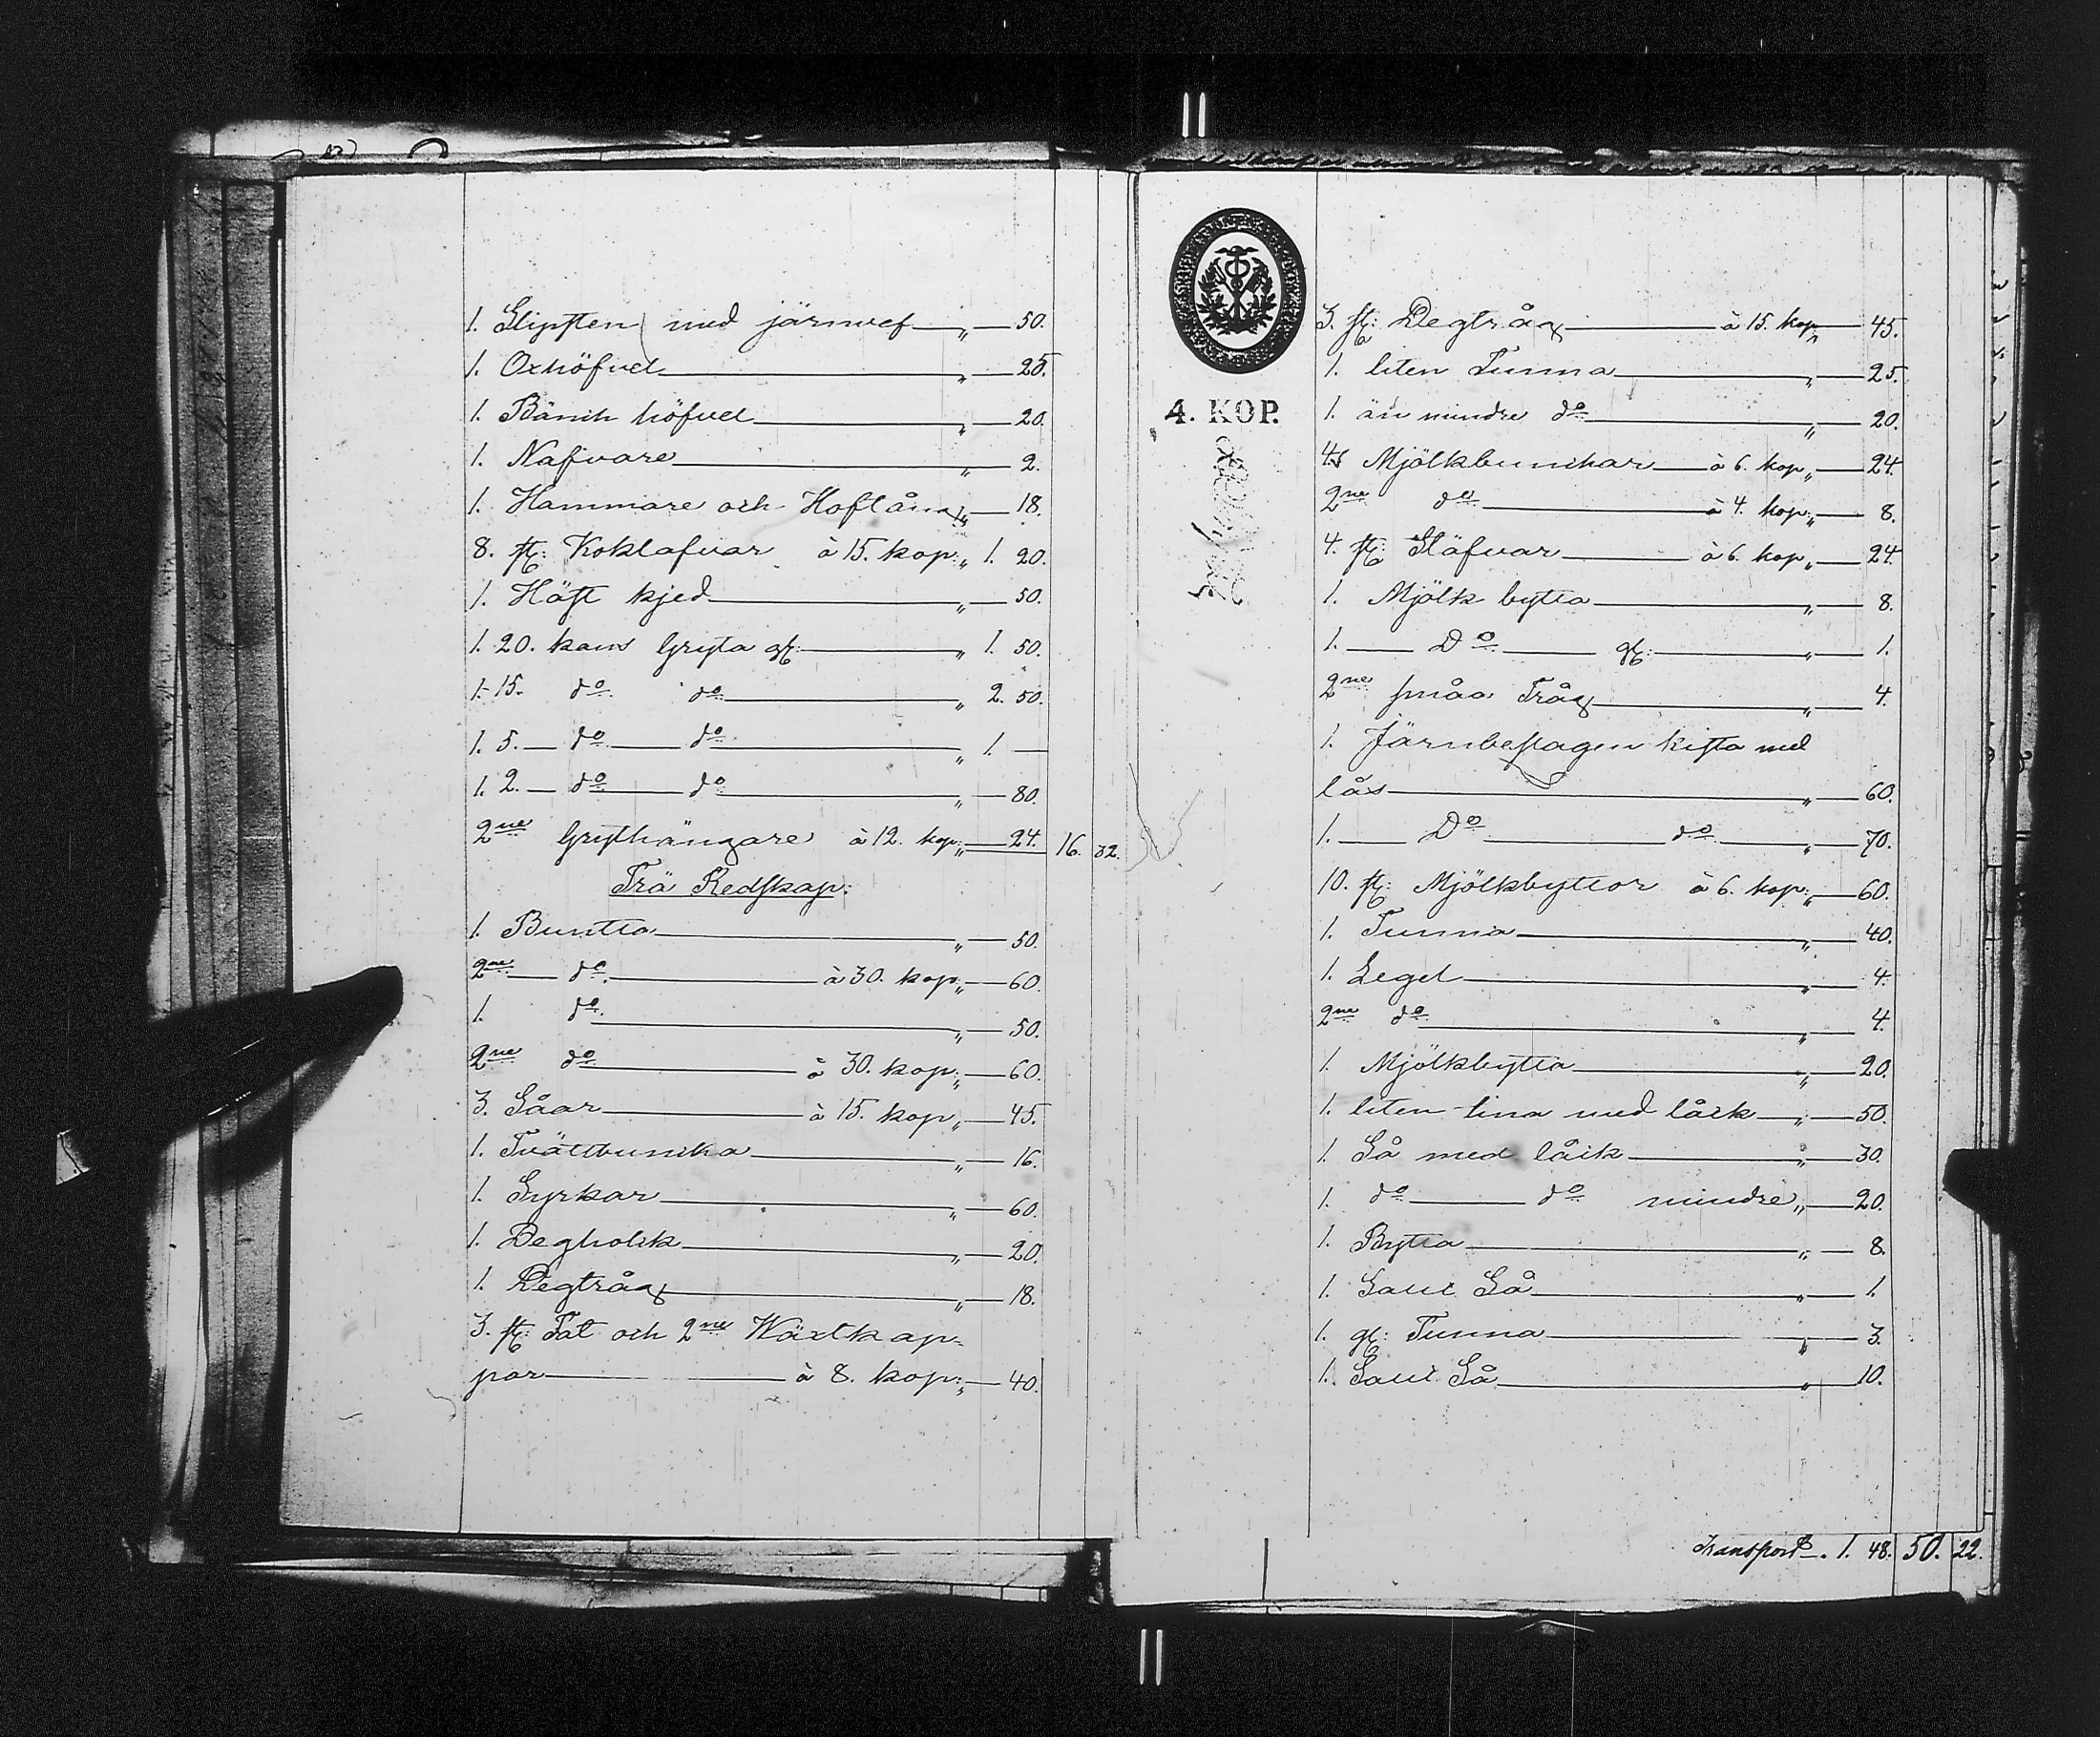 1. Slipsten med järnvef „ — 50.
1. Oxhöfvel „ — 25.
1. Bänck höfvel „ — 20.
1. Nafvare „ — 2.
1. Hammare och Hoftång „ — 18.
8. st: Koklafvar à 15. kop: „ 1. 20.
1. Häst kjed „ — 50.
1. 20. kans Gryta gl: „ 1. 50.
1. 15. do do „ 2. 50.
1. 5. — do — do „ 1. —
1. 2. — do — do „ — 80.
2ne Grythängare à 12. kop: „ — 24. 16. 32.
Trä Redskap:
1. Buntta „ — 50.
2ne — do à 30. kop: „ — 60.
1. do „ — 50.
2ne do à 30. kop: „ — 60.
3. Såar à 15. kop „ — 45.
1. Tvättbuncka „ — 16.
1. Syrkar „ — 60.
1. Degholck „ — 20.
1. Degtråg „ — 18.
3. st: Fat och 2ne Wäxtkap-
par à 8. kop: „ — 40.
4. KOP.
3. st: Degtråg à 15. kop „ — 45.
1. liten Tunna „ — 25.
1. än mindre do „ — 20.
4. Mjölkbunckar à 6. kop „ — 24.
2ne do à 4. kop: „ — 8.
4. st: Stäfvar à 6. kop „ — 24.
1. Mjölk bytta „ — 8.
1. — Do — gl: „ — 1.
2ne småa Tråg „ — 4.
1. Järnbeslagen kista med
lås „ — 60.
1. — Do — do „ — 70.
10. st: Mjölkbyttor à 6. kop: „ — 60.
1. Tunna „ — 40.
1. Legel „ — 4.
2ne do „ — 4.
1. Mjölkbytta „ — 20.
1. liten tina med låck „ — 50.
1. Så med låck „ — 30.
1. do — do mindre „ — 20.
1. Bytta „ — 8.
1. Salt Så „ — 1.
1. gl: Tunna „ — 3.
1. Salt Så „ — 10.
Transport . 1. 48. 50. 22.